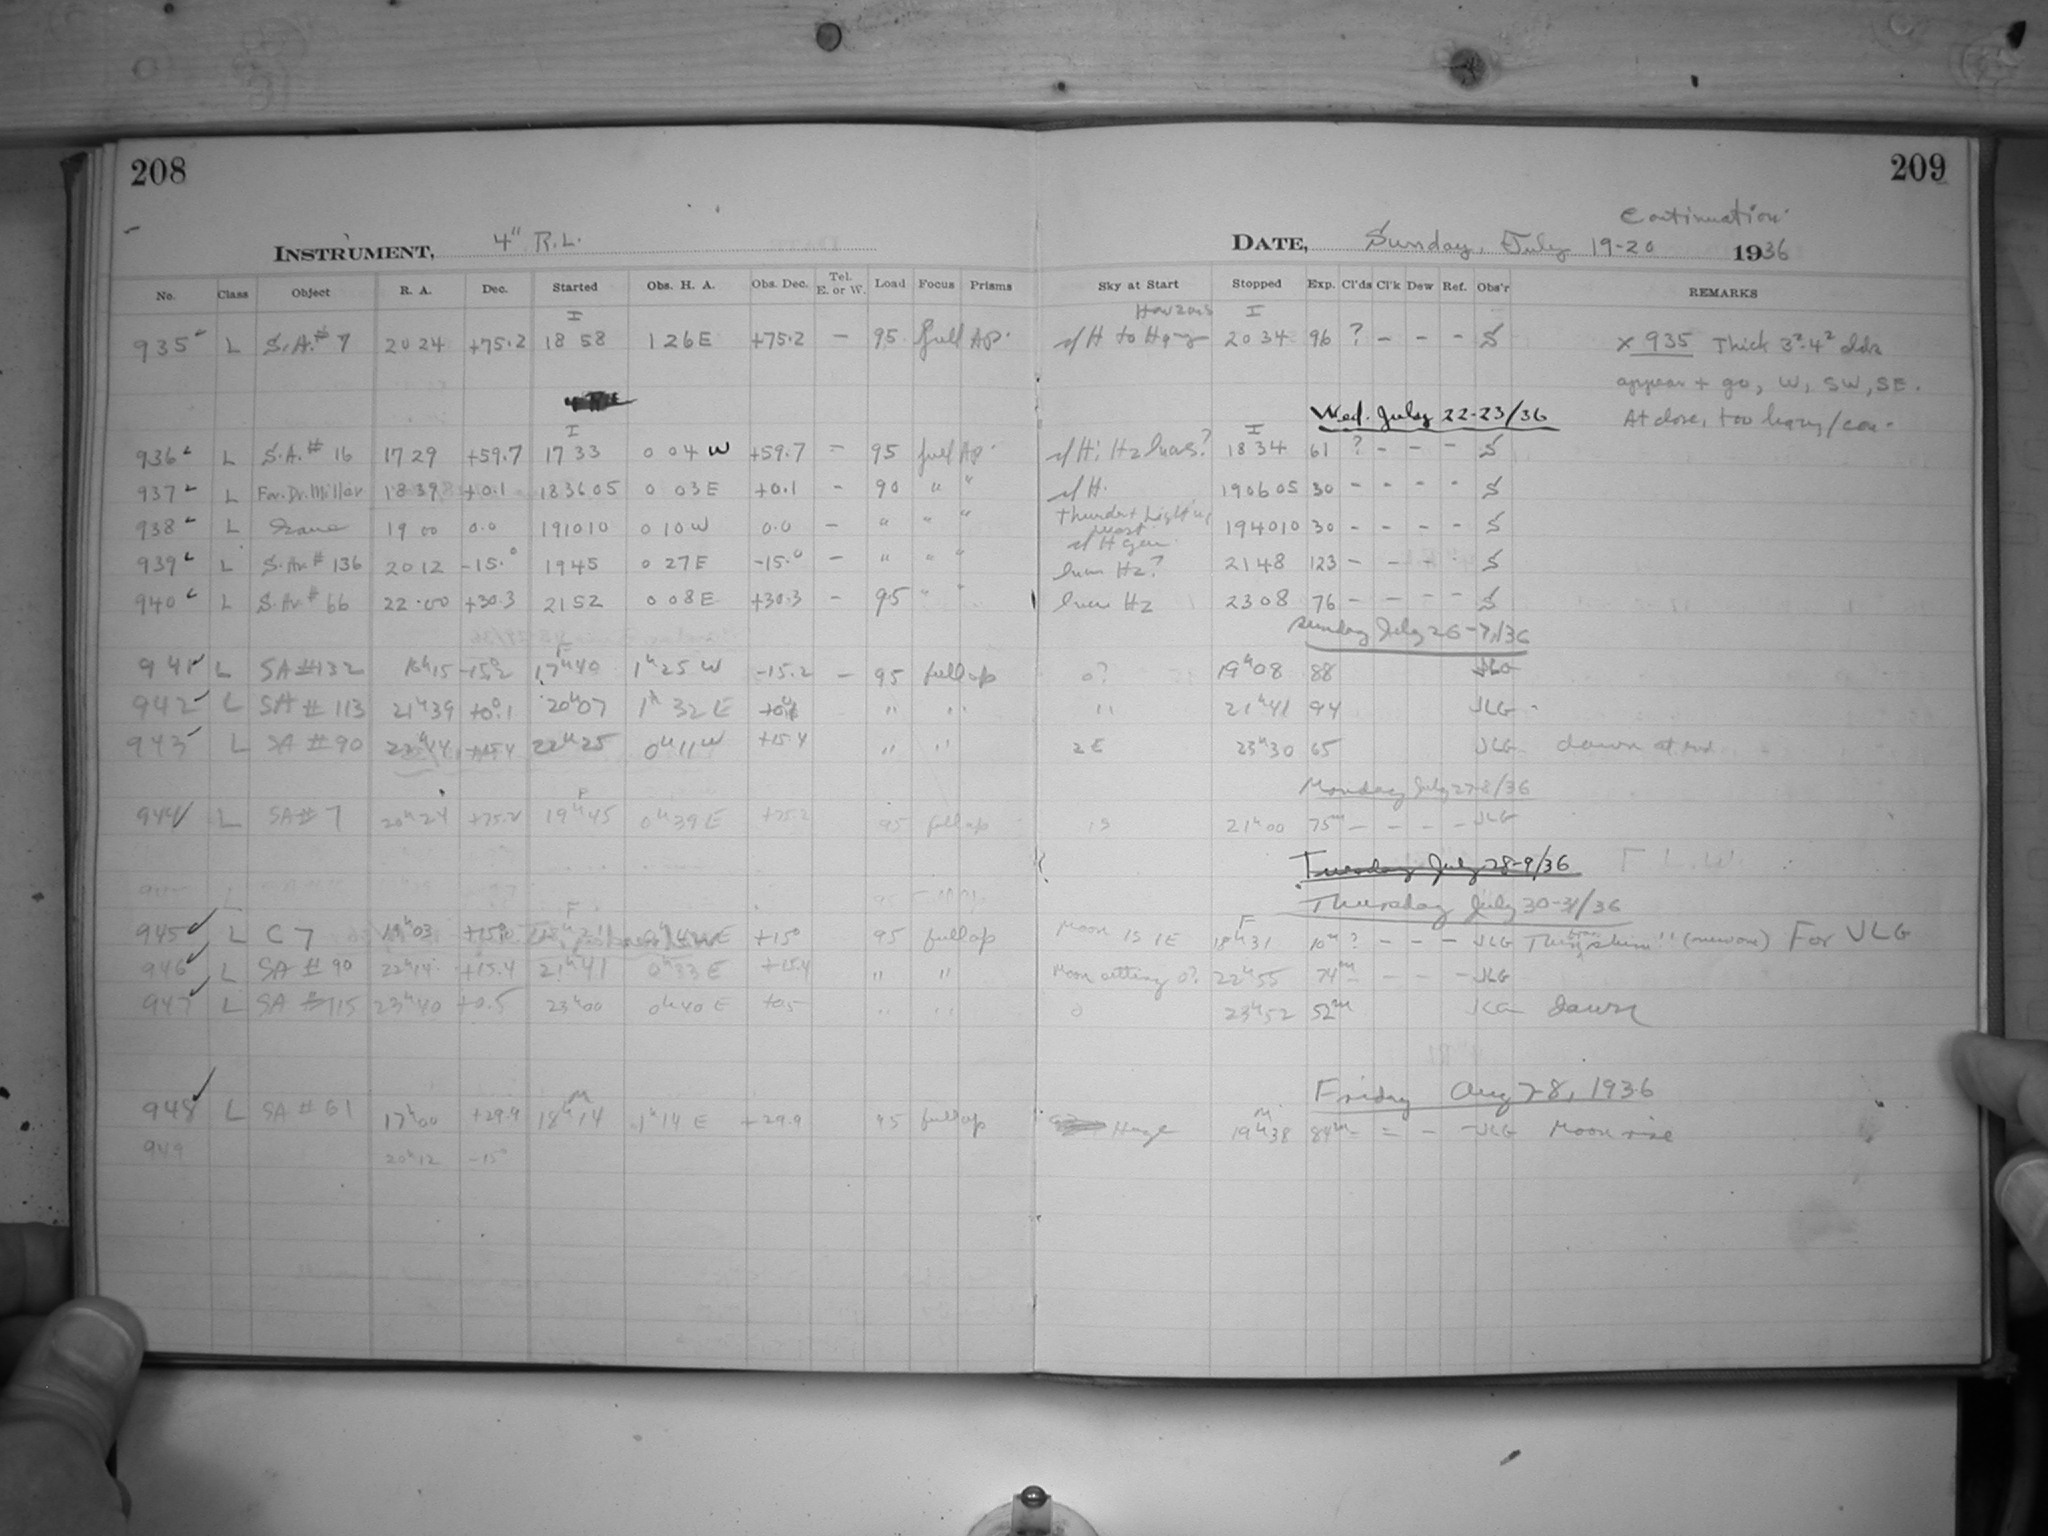 208
209
Continuation
INSTRUMENT, 4" R.L.
DATE, Sunday, July 19-20 1936
No. Class Object R. A. Dec. Started Obs. H. A. Obs. Dec. Tel. E. or W. Load Focus Prisms Sky at Start Stopped Exp. Cl'ds Cl'k Dew Ref. Obs'r REMARKS
I I
935 L S.A.# 7 2024 +75.2 18 58 1 26 E +75.2 – 95 full Ap. H to 2034 96 ? – – – S x 935 Thick
appear + go, W, SW, SE.
Wed. July 22-23/36
I I
936 L S.A.# 16 1729 +59.7 17 33 0 04 W +59.7 – 95 full Ap. 1834 61 ? – – – S
937 L For Dr. Miller 1839 +0.1 183605 0 03 E +0.1 – 90 " " 190605 30 – – – – S
938 L 19 00 0.0 191010 0 10 W 0.0 – " " " 194010 30 – – – – S
939 L S.Ar.# 136 2012 -15.° 1945 0 27 E -15.° – " " " Hz? 2148 123 – – – – S
940 L S.Ar.# 66 22 00 +30.3 2152 0 08 E +30.3 – 95 " " Hz 2308 76 – – – – S
Sunday July 26-7/36
941 L SA#132 -15.2 17h40 1h25 W -15.2 – 95 full ap 0? 19h08 88 JLG
942 L SA # 113 21h39 +0.1 20h07 1h 32 E " " " 21h41 94 JLG
943 L SA # 90 22h14 +15.4 22h25 0h11W +15.4 " " 2E 23h30 65 JLG dawn at end
Monday July 27-8/36
F
944 L SA# 7 20h24 +75.2 19h45 0h39E +75.2 95 full ap 21h00 75m – – – – JLG
Tuesday July 28-9/36
Thursday July 30-31/36
F F
945 L C 7 +15° 95 full ap Moon 18h31 10m ? – – – JLG For JLG
946 L SA # 90 22h14 +15.4 21h41 0h33 E +15.4 " " Moon setting 0? 22h55 74m – – – JLG
947 L SA #115 23h40 +0.5 23h00 0h40 E +0.5 " " 0 23h52 52m JLG Dawn
Friday Aug 28, 1936
M M
948 L SA # 61 17h00 +29.9 18h14 1h14 E +29.9 95 full ap Haze 19h38 84m – – – – JLG Moon rise
949 20h12 -15°